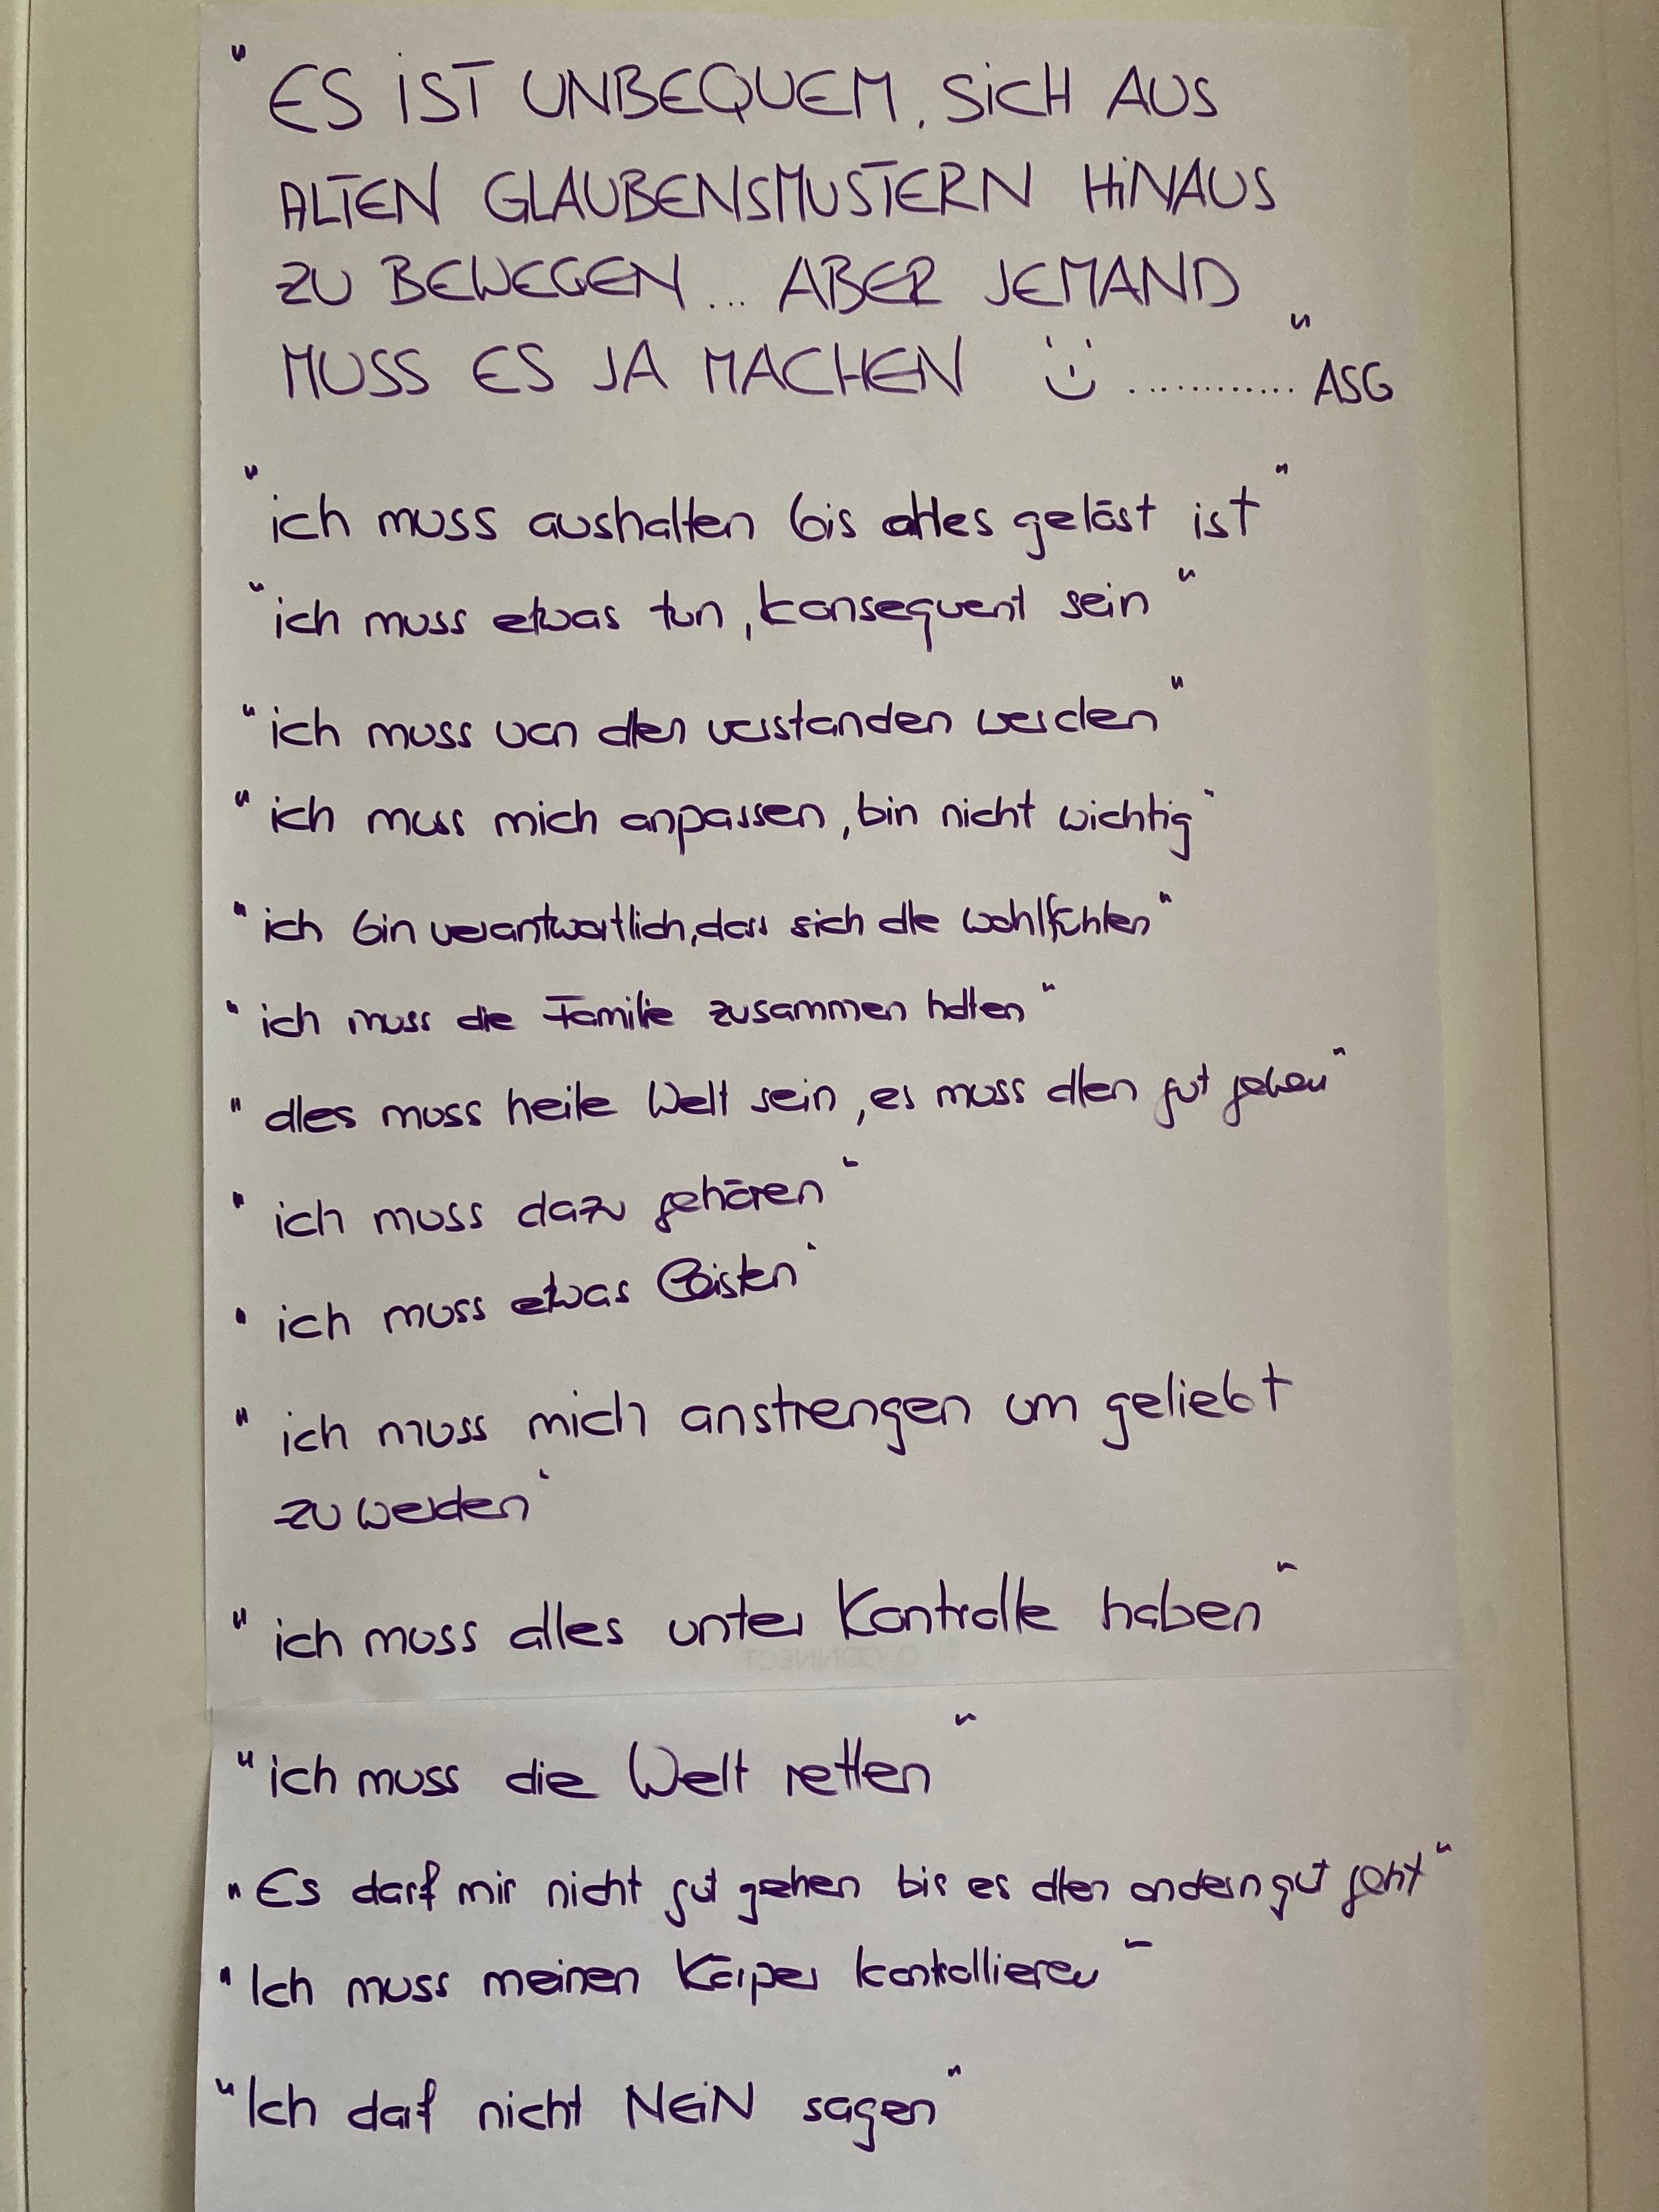 " ES IST UNBEQUEM, SICH AUS
ALTEN GLAUBENSMUSTERN HINAUS
ZU BEWEGEN... ABER JEMAND
MUSS ES JA MACHEN ............" ASG
"ich muss aushalten bis alles gelöst ist"
"ich muss etwas tun, konsequent sein"
"ich muss von allen verstanden werden"
"ich muss mich anpassen, bin nicht wichtig"
"ich bin verantwortlich, dass sich alle wohlfühlen"
"ich muss die Familie zusammen halten"
"alles muss heile Welt sein, es muss allen gut gehen"
"ich muss dazu gehören"
"ich muss etwas leisten"
"ich muss mich anstrengen um geliebt
zu werden"
"ich muss alles unter Kontrolle haben"
Q-CONNECT
"ich muss die Welt retten"
"Es darf mir nicht gut gehen bis es allen andern gut geht"
"Ich muss meinen Körper kontrollieren"
"Ich darf nicht NEIN sagen"